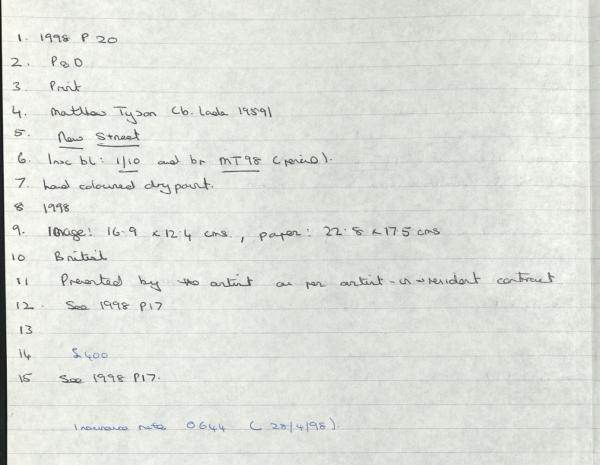 1. 1998 P 20
2. P & D
3. Print
4. Matthew Tyson (b. Leeds 1959)
5. New Street
6. Insc bl: 1/10 and br MT98 (pencil).
7. hand coloured drypoint.
8 1998
9. Image: 16.9 x 12.4 cms., paper: 22.8 x 17.5 cms
10 British
11 Presented by the artist as per artist-in-resident contract
12. See 1998 P17
13
14 £400
15 See 1998 P17.
Insurance note 0644 (28/4/98).